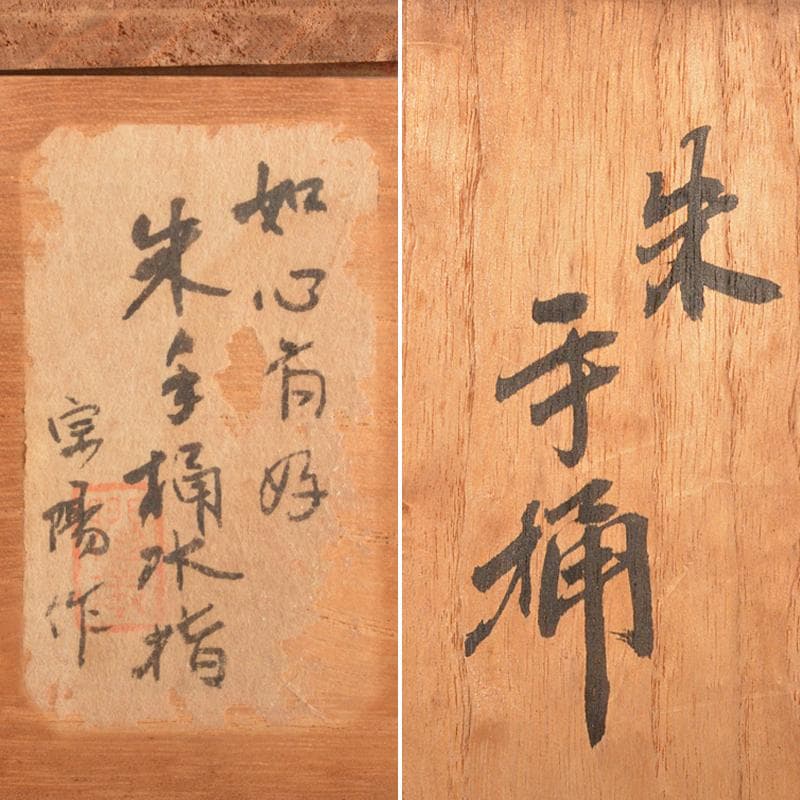 如心斎好
朱手桶水指
宗陽作
朱
手
桶